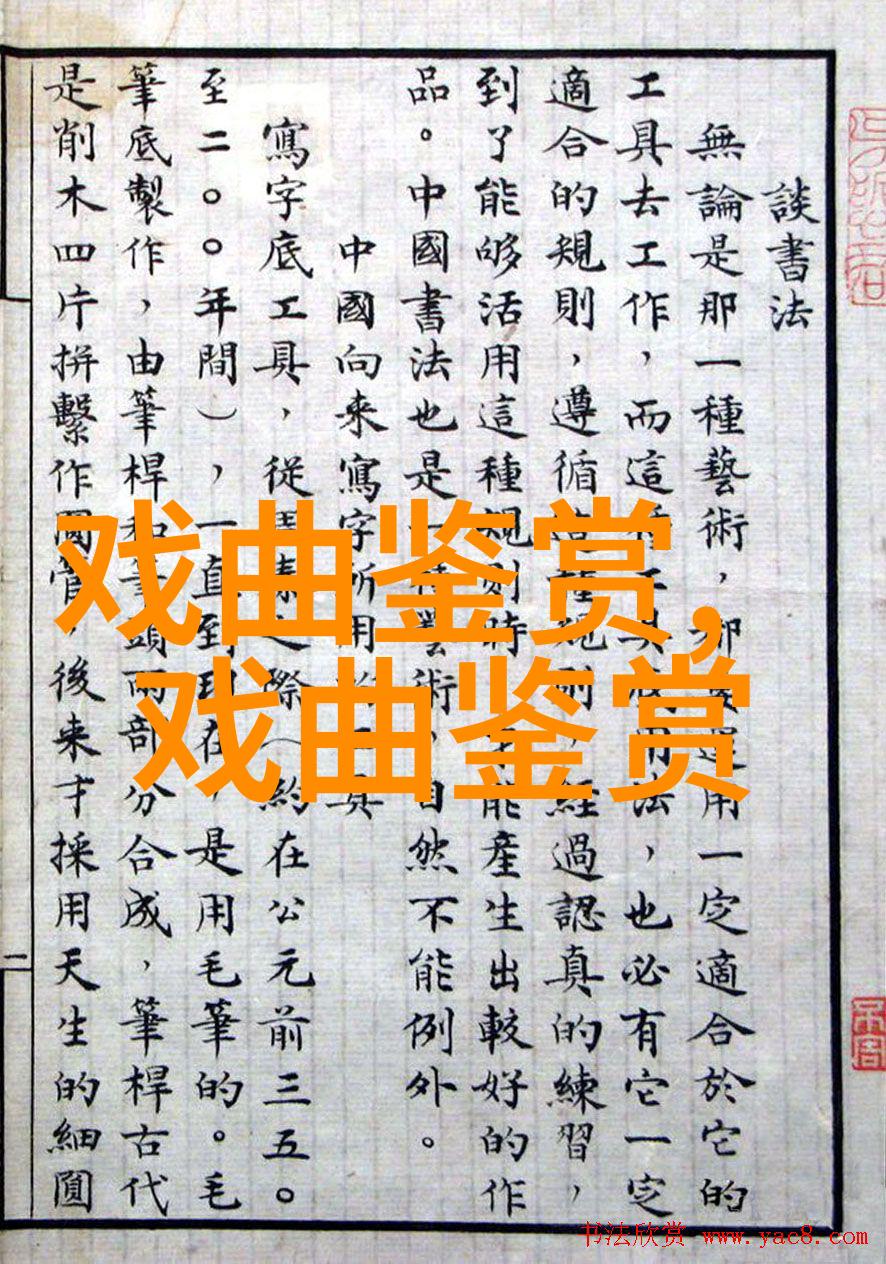 談書法
無論是那一種藝術，運用一定適合於它的
工具去工作，而這種工具底用法，也必有它一定
適合的規則，遵循這種規則，經過認真的練習，
到了能够活用這種規則時，能產生出較好的作
品。中國書法也是一種藝術，自然不能例外。
中國向来寫字所用的工具
寫字底工具，從之際（約在公元前三五〇
至二〇〇年間），一直到現在，是用毛筆的。毛
筆底製作，由筆桿和筆頭兩部分合成，筆桿古代
是削木四片拼繫作圓管，後来才採用天生的細圓
二
戏曲鉴赏，
戏曲鉴赏
书法欣赏 www.yac8.com